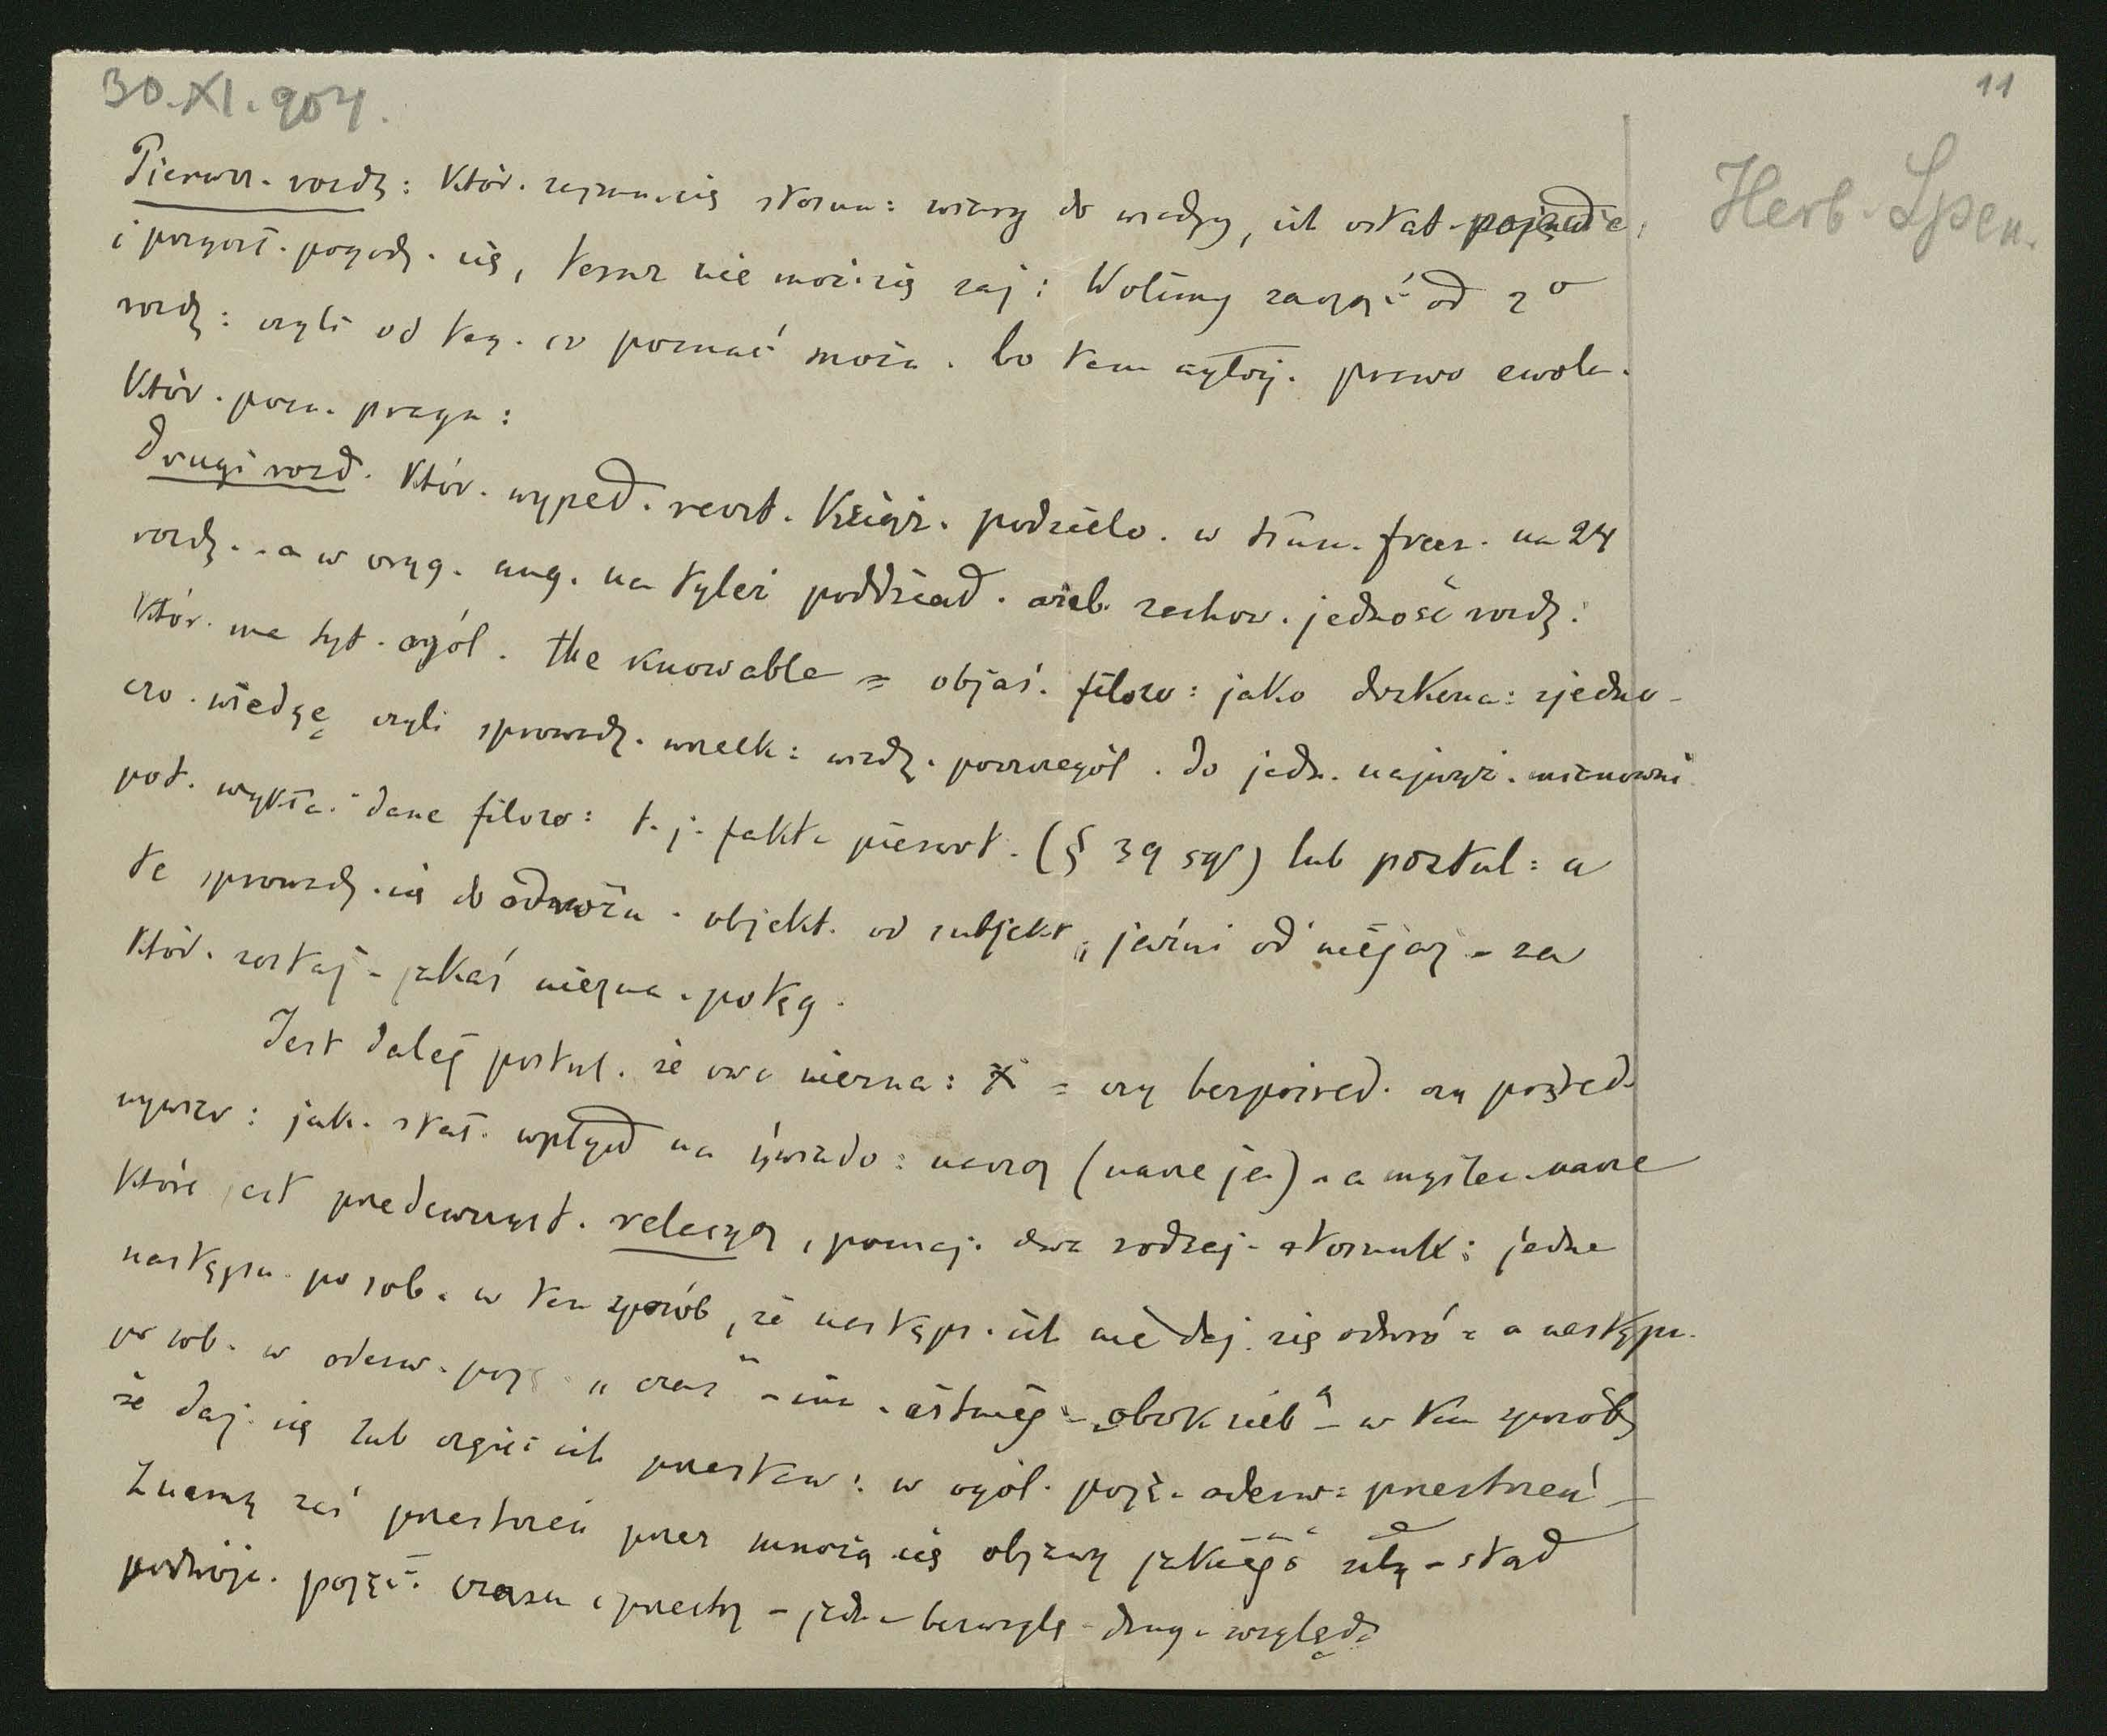 30.XI.904.
11
Herb. Spen.
Pierwsz. rozdz: któr. zajmu. się stosun: wiary do wiedzy, ich ostat.
i pogodz. się, teraz nie moż. się zaj: Wolimy zacząć od 2º
rozdz: czyli od teg. co poznać możn. bo tam prawo ewolu.
któr. pozn. pragn:
Drugi rozd. któr. wypeł. reszt. książ. podzielo. w tłum. franc. na 24
rozdz. a w oryg. ang. na tyleż poddział. ażeb. zachow. jedność rozdz:
któr. ma tyt. ogól. the knowable = objaś. filozo: jako doskona: zjedno-
czo. wiedzę czyli sprowadz. wszelk: wiedz. poszczegól. do jedn. najwyż.
pot. wykła. dane filozo: t.j. fakta pierwot. (§ 39 sqs) lub postul: a
te sprowadz. się do odróżn. objekt. od subjekt., jaźni od niejaź - za
któr. zostaj. jakaś niezna. potęg.
Jest dalej postul. że owa niezna: X = czy bezpośred. czy pośred.
wywier: jak. stał. wpływ na świado: naszą (nasze ja) - a myśle. nasze
które jest przedewszyst. relacyą, poznaj. dwa rodzaj. stosunk: jedne
następu. po sob. w ten sposób, że następs. ich nie daj. się odwró - a następu.
po sob. w oderw. poję „czas" - inn. istniej. obok sieb - w ten sposób
że daj. się lub ich przestaw: w ogól. poję. oderw: przestrzeń -
Znamy zaś przestrzeń przez mnożą. się objawy jakiegoś siły - stąd
podwójn. pojęć. czasu i przestrz - jedn. bezwzglę - drug. względ.